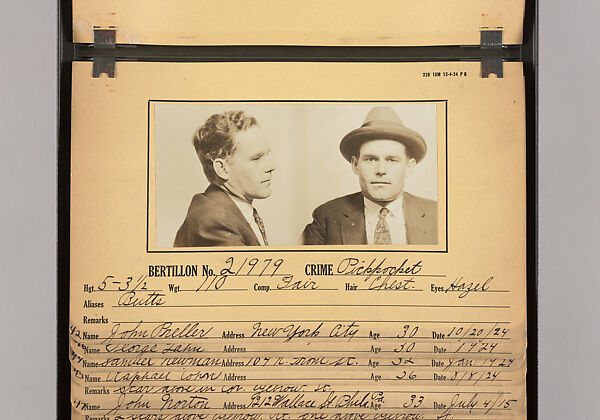 228 15M 12-4-24 P B
BERTILLON No. 21979 CRIME Pickpocket
Hgt. 5-3 1/2 Wgt. 110 Comp. Fair Hair Chest. Eyes Hazel
Aliases Butts
Remarks
Name John Beller Address New York City Age 30 Date 10/20/24
Name George Address Age 30 Date
Name Samuel Newman Address 104 N. Front St. Age 32 Date Jan. 19 27
Name Raphael Address Age 26 Date 8/8/24
Remarks Scar above in cor. eyebrow. St.
Name John Norton Address Wallace St. Phila. Pa. Age 33 Date July 4/15
above eyebrow. above eyebrow.